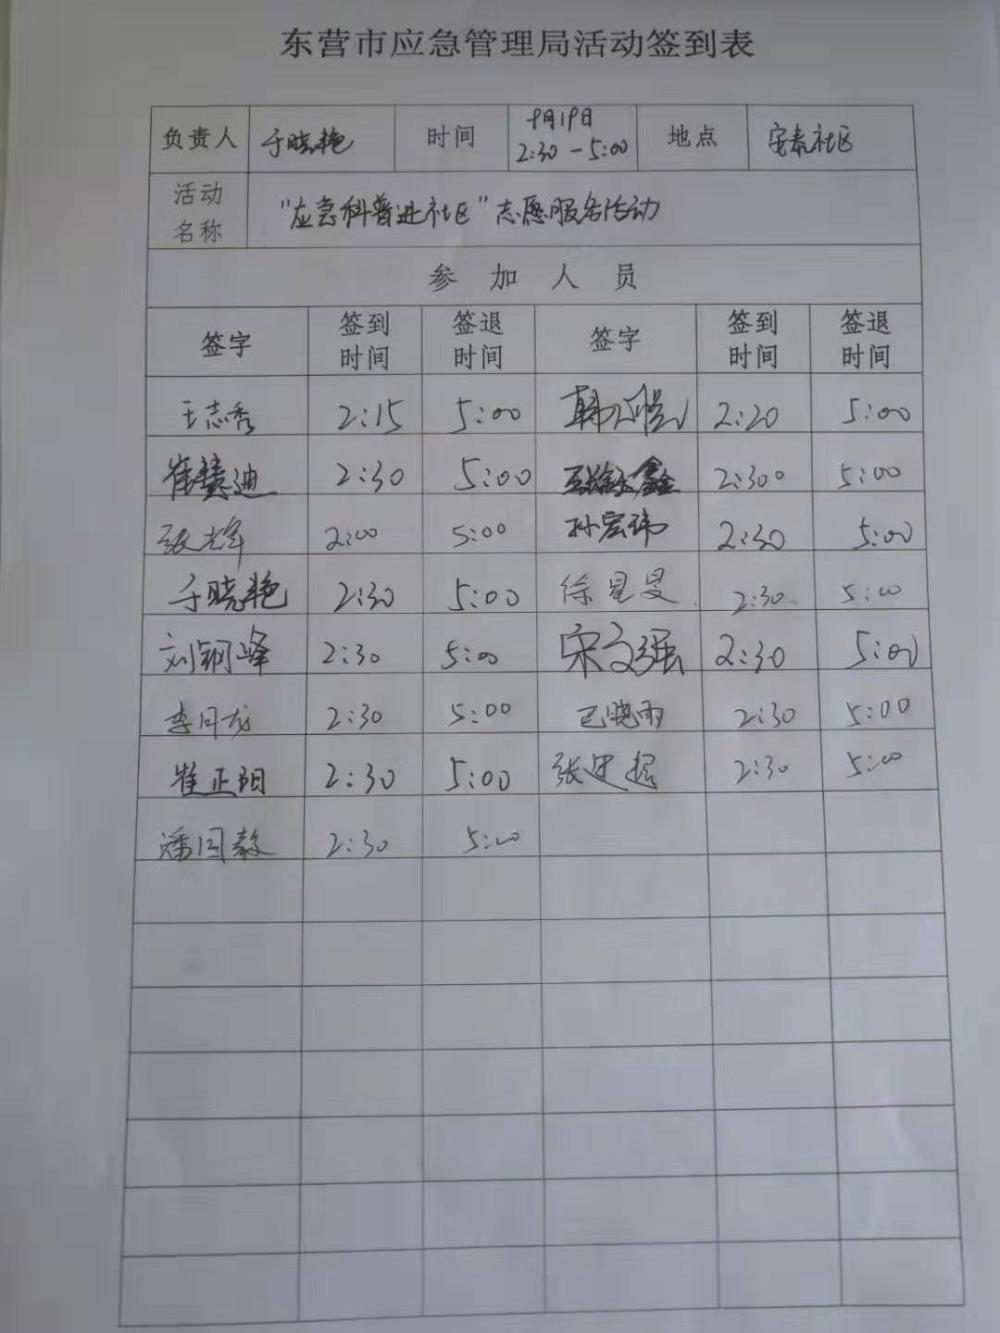 东营市应急管理局活动签到表
负责人 于晓艳 时间 9月19日 2:30-5:00 地点 安泰社区
活动名称 "应急科普进社区"志愿服务活动
参加人员
签字 签到时间 签退时间 签字 签到时间 签退时间
王志秀 2:15 5:00 韩 2:20 5:00
崔慧迪 2:30 5:00 鑫 2:30 5:00
张 2:00 5:00 孙宏伟 2:30 5:00
于晓艳 2:30 5:00 徐星旻 2:30 5:00
刘钢峰 2:30 5:00 宋文强 2:30 5:00
李同龙 2:30 5:00 晓雨 2:30 5:00
崔正阳 2:30 5:00 张 2:30 5:00
潘国 2:30 5:00